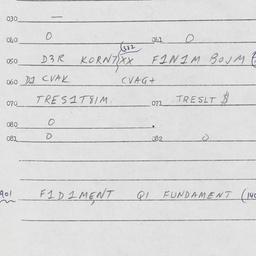 030 —
040 0 041 0
050 D3R KORNT XX F1N1M BOJM
060 D1 CVAK CVAG+
070 TRES1T8IM 071 TRESLT $
080 0
081 0 082 0
F1D1MENT Q1 FUNDAMENT (140